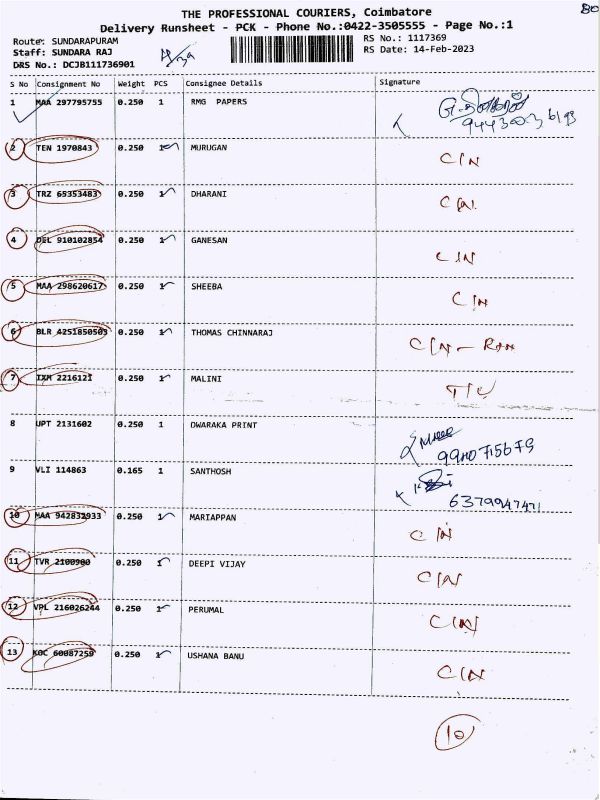 THE PROFESSIONAL COURIERS, Coimbatore
Delivery Runsheet - PCK - Phone No.:0422-3505555 - Page No.:1
Route: SUNDARAPURAM RS No.: 1117369
Staff: SUNDARA RAJ RS Date: 14-Feb-2023
DRS No.: DCJB111736901
S No Consignment No Weight PCS Consignee Details Signature
1 MAA 297795755 0.250 1 RMG PAPERS
2 TEN 1970843 0.250 1 MURUGAN C/N
3 TRZ 65353483 0.250 1 DHARANI C/N
4 DEL 910102854 0.250 1 GANESAN C/N
5 MAA 298620617 0.250 1 SHEEBA C/N
6 BLR 4251850503 0.250 1 THOMAS CHINNARAJ C/N -
7 IXM 2216121 0.250 1 MALINI
8 UPT 2131602 0.250 1 DWARAKA PRINT
9 VLI 114863 0.165 1 SANTHOSH
6379947471
10 MAA 942832933 0.250 1 MARIAPPAN C/N
11 TVR 2100900 0.250 1 DEEPI VIJAY C/N
12 VPL 216026244 0.250 1 PERUMAL C/N
13 KOC 60087259 0.250 1 USHANA BANU C/N
10